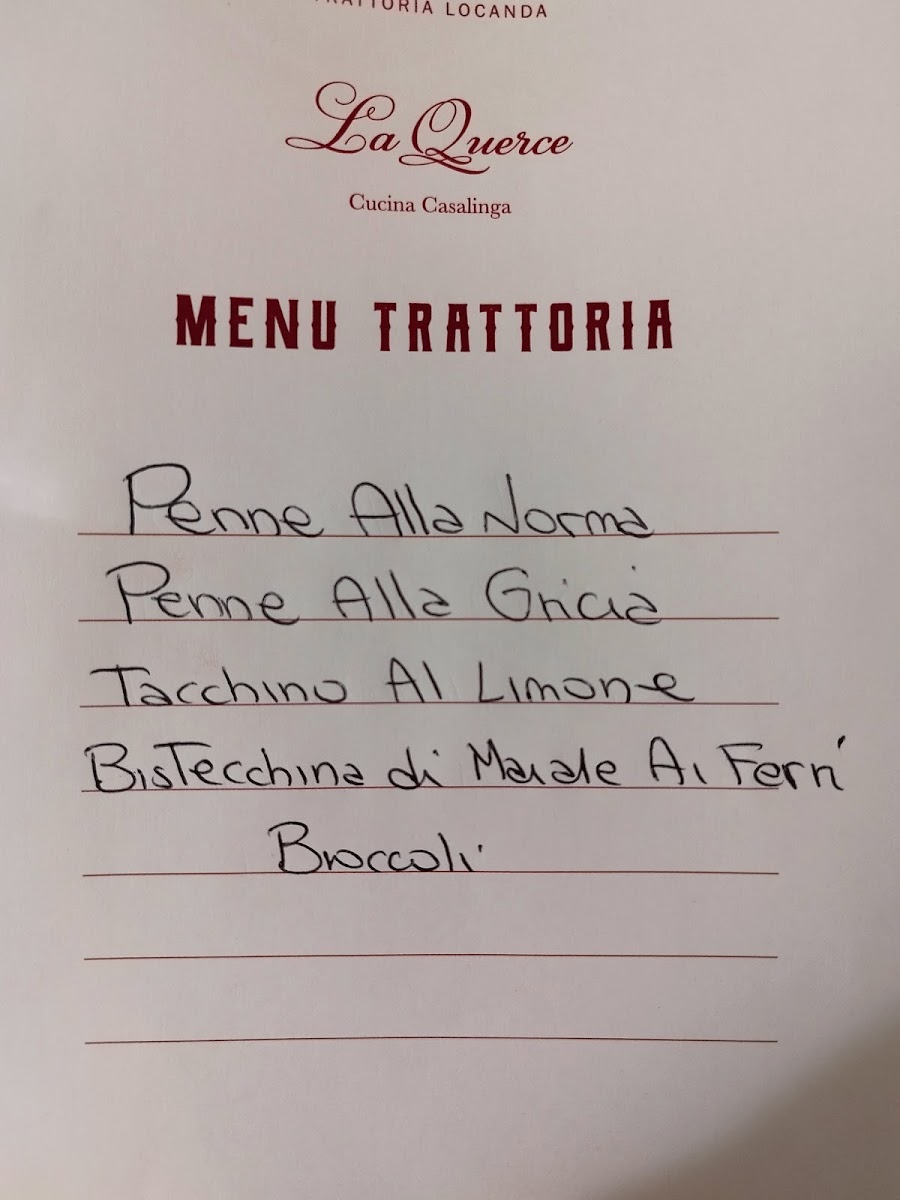 TRATTORIA LOCANDA
La Querce
Cucina Casalinga
MENU TRATTORIA
Penne Alla Norma
Penne Alla Gricia
Tacchino Al Limone
BisTecchina di Maiale Ai Ferri
Broccoli